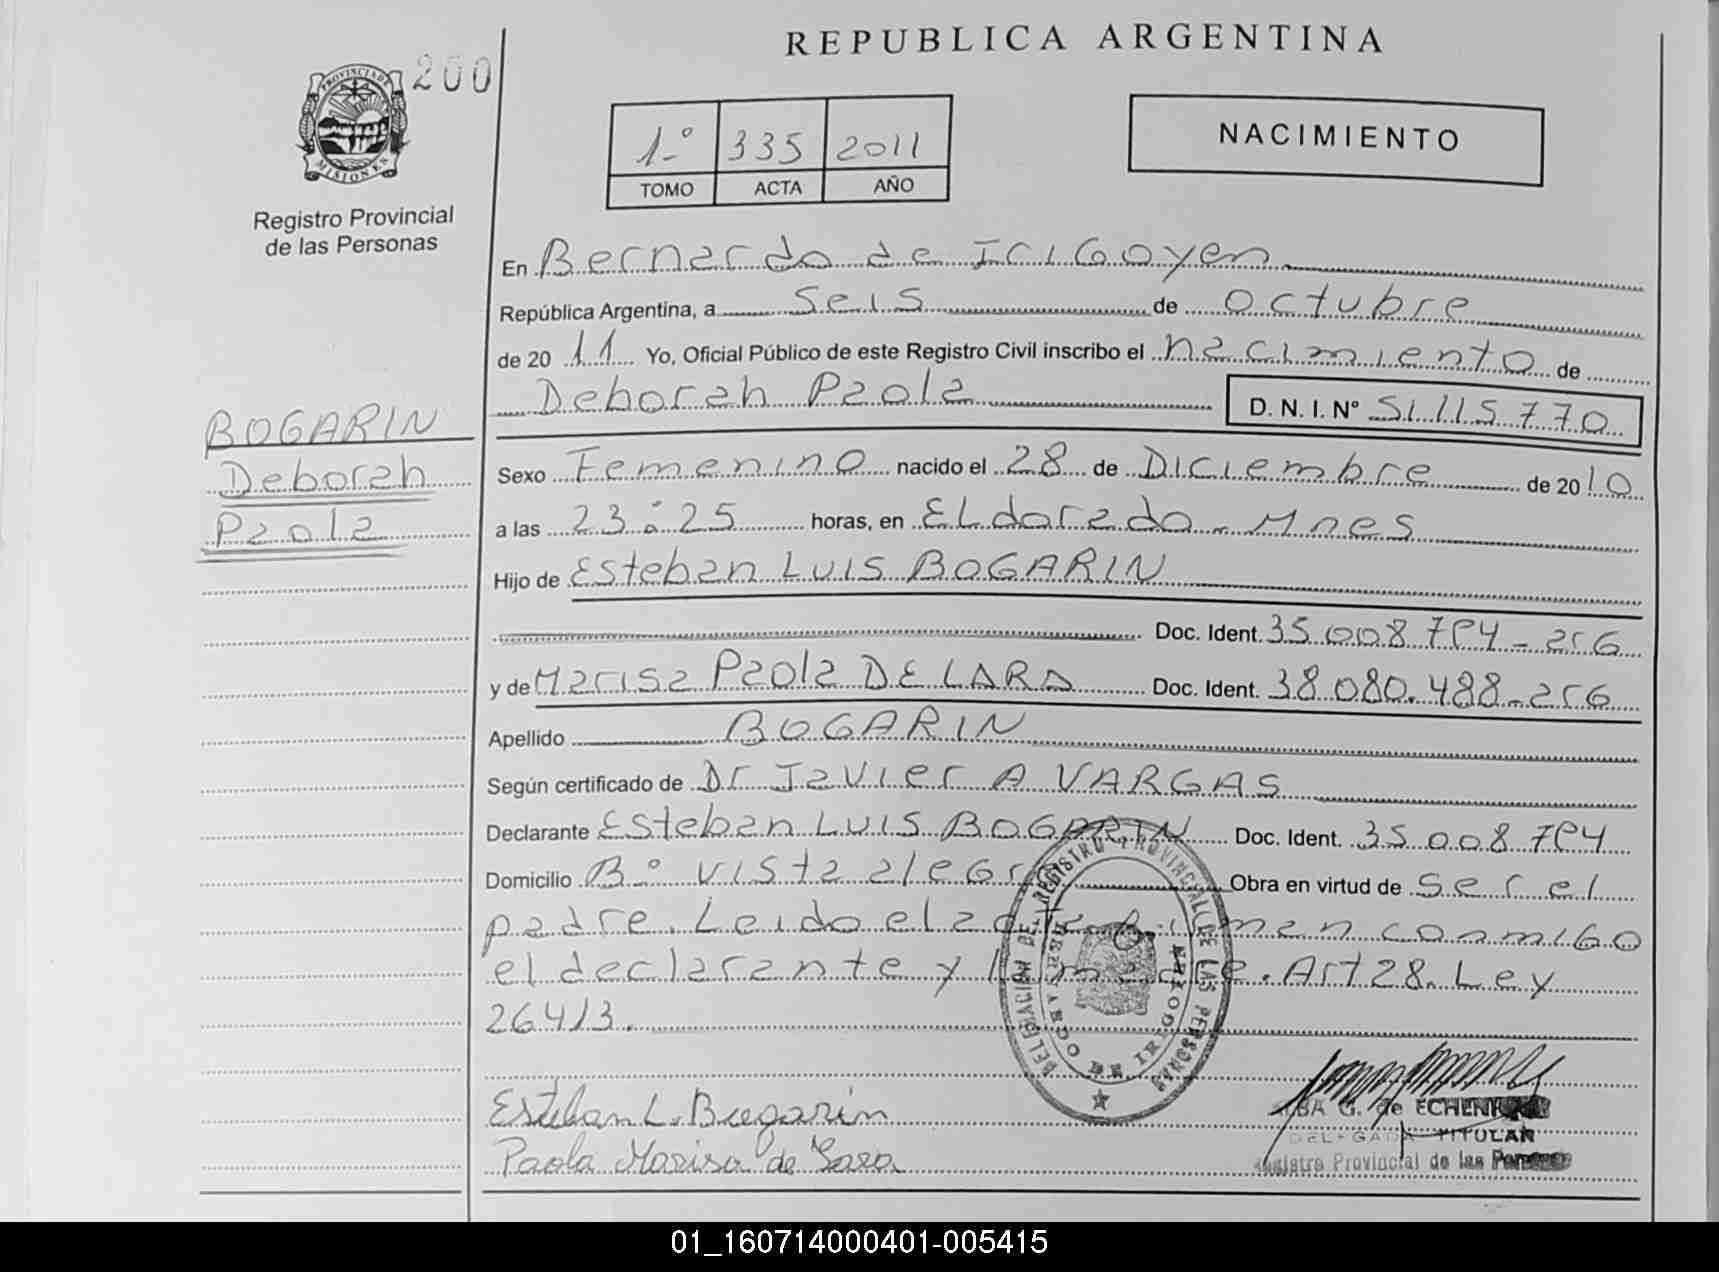 REPUBLICA ARGENTINA
200
PROVINCIA DE
MISIONES
Registro Provincial
de las Personas
1º 335 2011
TOMO ACTA AÑO
NACIMIENTO
En Bernardo de Irigoyen
República Argentina, a seis de octubre
de 2011 Yo, Oficial Público de este Registro Civil inscribo el nacimiento de
Deborah Paola D. N. I. Nº 51.115.770
BOGARIN
Deborah
Paola
Sexo Femenino nacido el 28 de Diciembre de 2010
a las 23:25 horas, en Eldorado - Mnes
Hijo de Esteban Luis BOGARIN
Doc. Ident. 35.008.794 - arg
y de Marisa Paola DE LARA Doc. Ident. 38.080.488 - arg
Apellido BOGARIN
Según certificado de Dr Javier A VARGAS
Declarante Esteban Luis BOGARIN Doc. Ident. 35.008.794
Domicilio Bº vista alegre Obra en virtud de ser el
padre. Leido el acta firman conmigo
el declarante y la madre. Art 28. Ley
26413.
DELEGACION DEL REGISTRO PROVINCIAL DE LAS PERSONAS
BERNARDO DE IRIGOYEN
Esteban L. Bogarin
Paola Marisa de Lara
ALBA G. de
DELEGADA TITULAR
Registro Provincial de las Personas
01_160714000401-005415